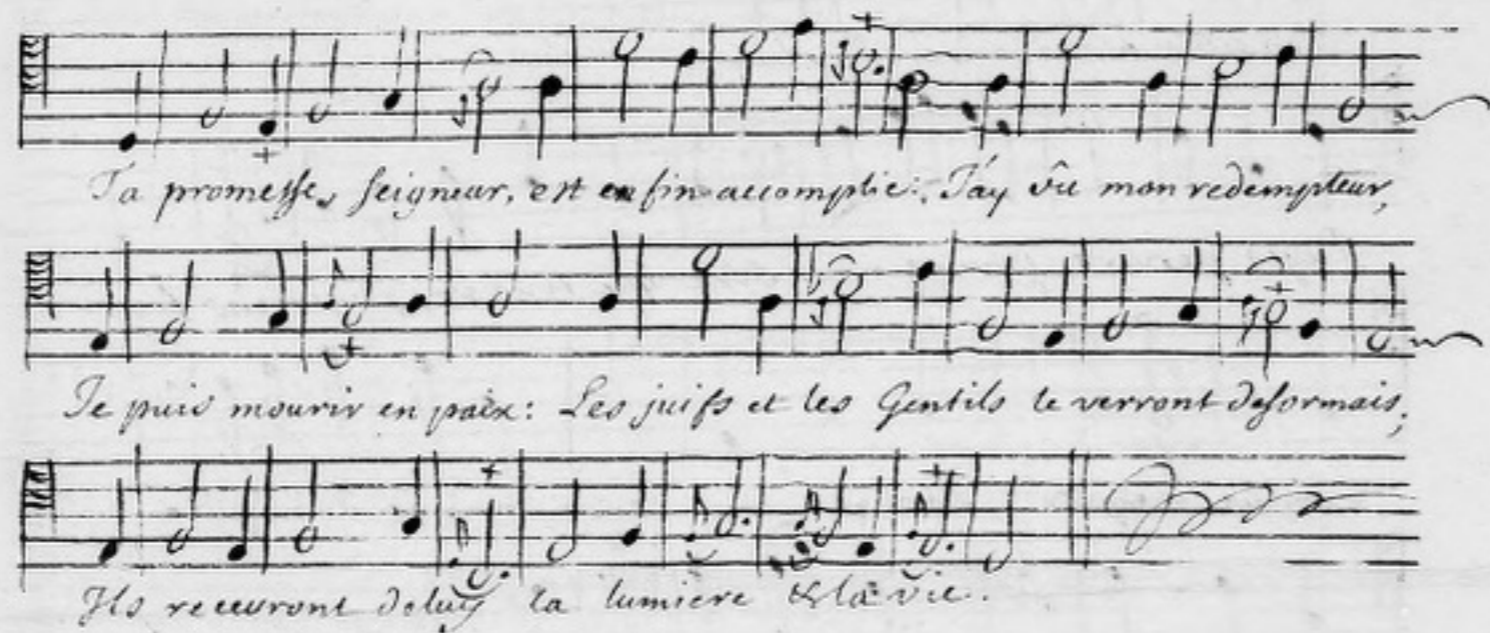 Ta promesse, Seigneur, est enfin accomplie: J'ay vû mon redempteur,
Je puis mourir en paix: Les juifs et les Gentils le verront desormais;
Ils recevront de luy la lumiere & la vie.